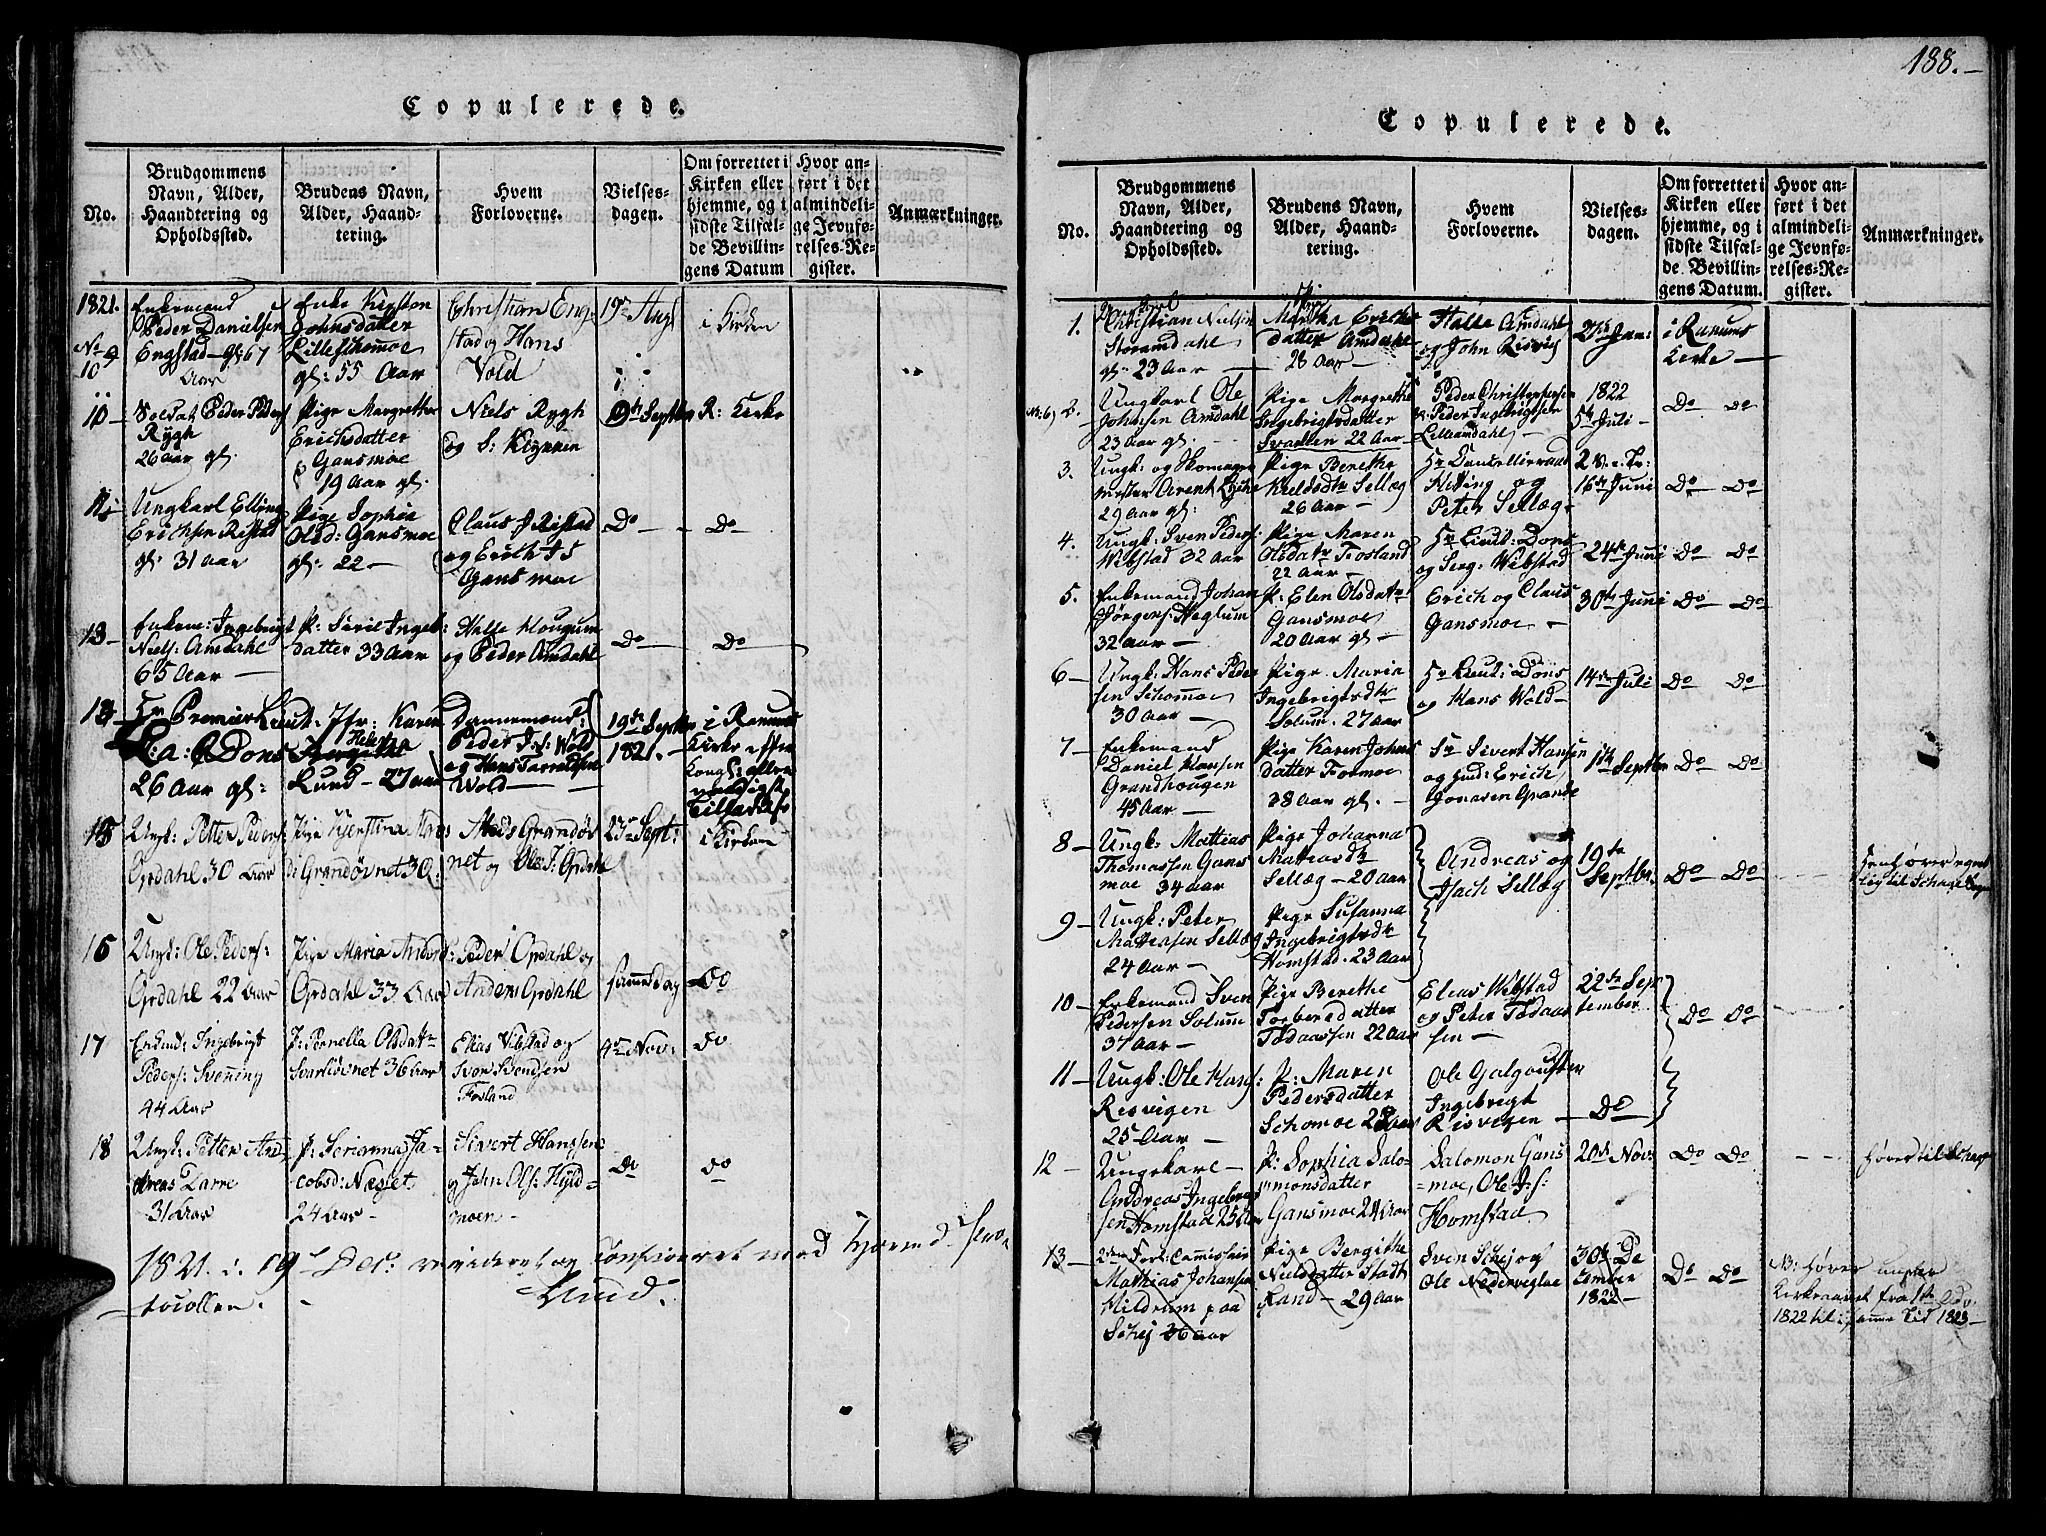 188.
Copulerede.
No.
Brudgommens
Navn, Alder,
Haandtering og
Opholdssted.
Brudens Navn,
Alder, Haand-
tering.
Hvem
Forloverne.
Vielses-
dagen.
Om forrettet i
Kirken eller
hjemme, og i
sidste Tilfæl-
de Bevillin-
gens Datum
Hvor an-
ført i det
almindeli-
ge Jevnfø-
relses-Re-
gister.
Anmærkninger.
1821.
No 9
10
Enkemand
Peder Danielsen
Engstad gl: 67
Aar
Enke Kirsten
Johnsdatter
Lilleschomoe
gl: 55 Aar
Christian Eng-
stad og Hans
Vold
19de Aug
i Kirken
10
Soldat Peder Peders
Rygh
26 aar gl.
Pige Margrethe
Erichsdatter
Gansmoe
19 Aar gl.
Niels Rygh
og S:
Septbr
R: Kirke
Ungkarl Elling
Erichsen Ristad
gl. 31 aar
Pige Sophia
Olsd: Gansmoe
gl: 22 —
Claus J Ristad
og Erich
Gansmoe
Do
Do
13
Enkem: Ingebrigt
Niels: Amdahl
65 Aar —
P: Siril Ingeb:
datter 33 Aar
Helle Hougum
og Peder Amdahl
Do
Do
Hr Premier Lieut:
Dons
26 Aar gl:
Jfr: Karen
Lund — 27 aar
Dannemænd:
Peder Wold
og Hans Torraldsen
Wold
19de Septbr
1821.
i Ranums
Kirke efter
Kongl: aller
naadigst
Tilladelse
15
Ungk: Petter Peders:
Opdahl 30 Aar
Pige Kjerstina
Grandøvnet 30
Grandøv
net og Ole J. Opdahl
23de Sept:
i Kirken
16
Ungk: Ole Peders:
Opdahl 22 Aar
Pige Maria Andersd:
Opdahl 33 Aar
Peder Opdahl og
Anders Opdahl
samme Dag
Do
17
Enkmd: Ingebrigt
Peders: Svenning
44 Aar
P: Pernella Olsdatr
Svarliøvnet 36 Aar
Elias Vibstad og
Svendsen
Fosland
4de Nov:
Do
18
Ungk: Petter And
dreas Zarre
31 Aar
P: Serianna Ja-
cobsd: Næsset
24 Aar
Sivert Hanssen
og John Ols: Hyld-
moen
Do
Do
1821. d. 19de Decr. revideret og confereret med Hjermd. Proto-
tocollen.
Lund.
Copulerede.
No.
Brudgommens
Navn, Alder,
Haandtering og
Opholdssted.
Brudens Navn,
Alder, Haand-
tering.
Hvem
Forloverne.
Vielses-
dagen.
Om forrettet i
Kirken eller
hjemme, og i
sidste Tilfæl-
de Bevillin-
gens Datum.
Hvor an-
ført i det
almindeli-
ge Jevnfø-
relses-Re-
gister.
Anmærkninger.
1.
Christian Nielsen
Storamdahl
gl. 23 aar —
Pige
Martha Erichs
datter Amdahl
28 Aar —
Amdahl
og John Risvig
Jan:
i Ranums
Kirke —
2.
Ungkarl Ole
Johnsen Amdahl
23 Aar gl.
Pige Margrethe
Ingebrigtsdatter
Svaalien 22 Aar
Peder Christophersen
Peder Ingebrigtsen
Lilleamdahl —
1822
5te Juli
Do Do
3.
Ungk: og Skomager
mester Arent
29 aar gl:
Pige Berethe
Kieldsdtr Sellæg
26 aar —
Hr Cancellieraad
Heting og
Peter Sellæg
16de Juni
Do Do
4.
Ungk: Sven Peders:
Wibstad 32 aar
Pige Maren
Olsdatr Fosland
22 Aar —
Hr Lieut: Dons
og Serg: Wibstad
24de Juni
Do Do
5.
Enkemand Johan
Jørgens: Heglum
32 aar —
P: Elen Olsdatr
Gansmoe
20 Aar gl
Erich og Claus
Gansmoe —
30te Juni
Do Do
6 —
Ungk: Hans Peder
sen Schomoe
30 aar —
Pige Maria
Ingebrigtsdtr
Solum. 27 aar
Hr Lieut: Dons
og Hans Wold
14de Juli
Do Do
7 —
Enkemand
Daniel Hansen
Grandhougen
45 Aar —
Pige Karen Johns
datter Formoe
28 Aar gl.
Sr Sivert Hansen
og Erich
Jonasen Grande
1te Septbr
Do Do
8 —
Ungk: Mattias
Thomassen Gans
moe 34 aar
Pige Johanna
Mathiasdtr
Sellæg — 20 aar
Andreas og
Isach Sellæg
19te
Septbr.
Do Do
9 —
Ungk: Peter
Mattiasen Sellæg
24 Aar —
Pige Susanna
Ingebrigtsdtr
Homstad. 23 aar
10 —
Enkemand Sven
Pedersen Solum
37 Aar —
Pige Berethe
TorberSdatter
22 aar
Elias Wibstad
og Peter
sen —
22de Sep
tember
Do Do
11 —
Ungk: Ole Hans:
Resvigen
25 Aar —
P: Maren
Pedersdatter
Schomoe 28 aar
Ole Galgouften
Ingebrigt
Risvigen —
Do
12 —
Ungekarl —
Andreas Ingebrigt
sen Homstad 25 Aar
P: Sophia Salo-
monsdatter
Gansmoe 24 Aar
Salomon Gans
=moe, Ole
Homstad.
20de Nov:
Do Do
hører til
13 —
Mattias Johansen
Hildrum paa
Schej 36 aar
Pige Bergithe
Nielsdatter Stadt
Rand — 29 Aar
Sven Schej og
Ole Nedervegloe
30te De
zember
1822 —
Do Do
NB: hører under
Kirkeaaret fra 1te Adv:
1822 til samme Tid 1823 —